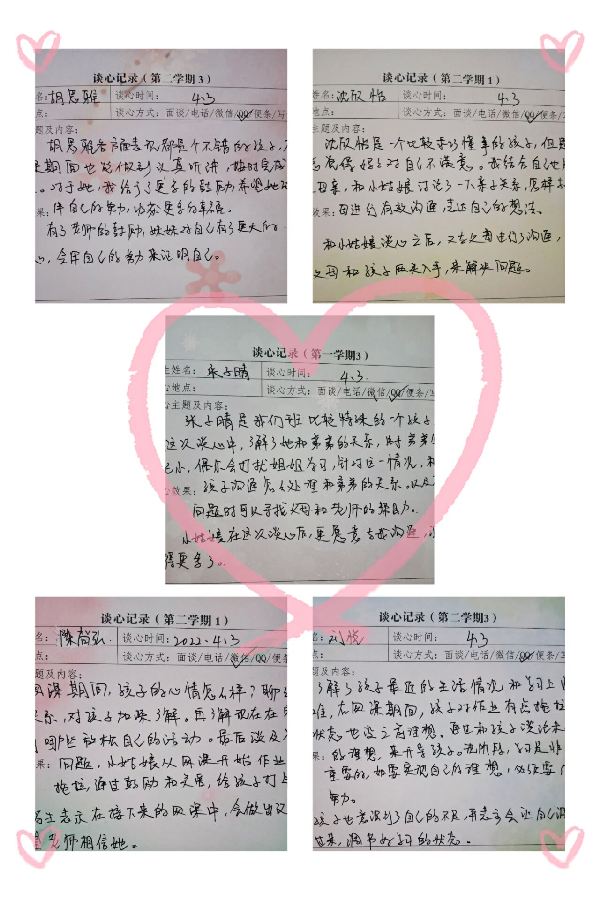 谈心记录（第二学期3）
名：胡思雅 谈心时间： 4.3
点： 谈心方式：面谈/电话/微信/QQ/便条/写
题及内容：
胡思雅各方面表现都是个不错的孩子，
期间也能做到认真听讲，按时完成
。对于她，我给了更多的鼓励，希望她
果：伴自己的努力，收获更多的幸福。
有了老师的鼓励，她对自己有了更大的
心，会用自己的努力来证明自己。
谈心记录（第二学期1）
姓名：沈欣怡 谈心时间： 4.3
点： 谈心方式：面谈/电话/微信/QQ/便条/
主题及内容：
沈欣怡是一个比较乖巧懂事的孩子，但
总觉得妈妈对自己不满意。我结合自己
母亲，和小姑娘讨论了一下亲子关系，怎样
效果：母进行有效沟通，表达自己的想法。
和小姑娘谈心之后，又与父母进行了沟通，
父母和孩子两头入手，来解决问题。
谈心记录（第一学期3）
生姓名：张子晴 谈心时间： 4.3.
心地点： 谈心方式：面谈/电话/微信/QQ/便条/写
心主题及内容：
张子晴是我们班比较特殊的一个孩子
这次谈心中，了解了她和弟弟的关系，由于弟弟
还小，偶尔会打扰姐姐学习，针对这一情况，和
心效果：孩子沟通怎么处理和弟弟的关系。以及
问题时可以寻找父母和老师的帮助。
小姑娘在这次谈心后，更愿意与我沟通，
得更多了。
谈心记录（第二学期1）
名：陈尚弘 谈心时间：2022.4.3
点： 谈心方式：面谈/电话/微信/QQ/便条
题及内容：
网课期间，孩子的心情怎么样？聊
，对孩子加深了解。且了解现在在
哪些放松自己的活动。最后谈及
果：问题，小姑娘从网课开始作业
拖拉，通过鼓励和交流，给孩子打
生表示在接下来的网课中，会做出改
老师相信她。
谈心记录（第二学期3）
名：刘悦 谈心时间： 4.3
点： 谈心方式：面谈/电话/微信/QQ/便条/
题及内容：
了解了孩子最近的生活情况和学习上
难，在网课期间，孩子对作业有点拖拉
状态也没之前理想。通过和孩子谈话
的理想，来开导孩子。现阶段，学习是非
重要的，如要实现自己的理想，必须要
努力。
孩子也意识到了自己的不足，并表示会让自己
，调节好学习的状态。